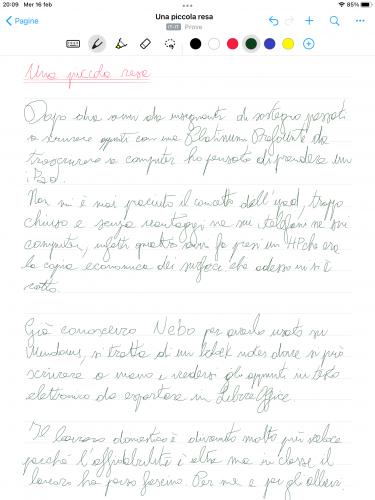 20:09 Mer 16 feb
85%
Pagine
Una piccola resa
IT-IT Prove
Una piccola resa
Dopo due anni da insegnante di sostegno passati
a scrivere appunti con una Platinum Prefounte da
trascrivere a computer ho pensato di prendere un
iPad.
Non mi è mai piaciuto il concetto dell'ipad, troppo
chiuso e senza vantaggi ne sui telefoni ne sui
computer, infatti quattro anni fa presi un HP che era
la copia economica dei surface che adesso mi si è
rotto.
Già conoscevo Nebo per averlo usato su
Windows, si tratta di un block notes dove si può
scrivere a mano e vedersi gli appunti in testo
elettronico da esportare in LibreOffice.
Il lavoro domestico è diventato molto più veloce
perché l'affidabilità è alta ma in classe il
lavoro ha perso fascino. Per me e per gli allievi.